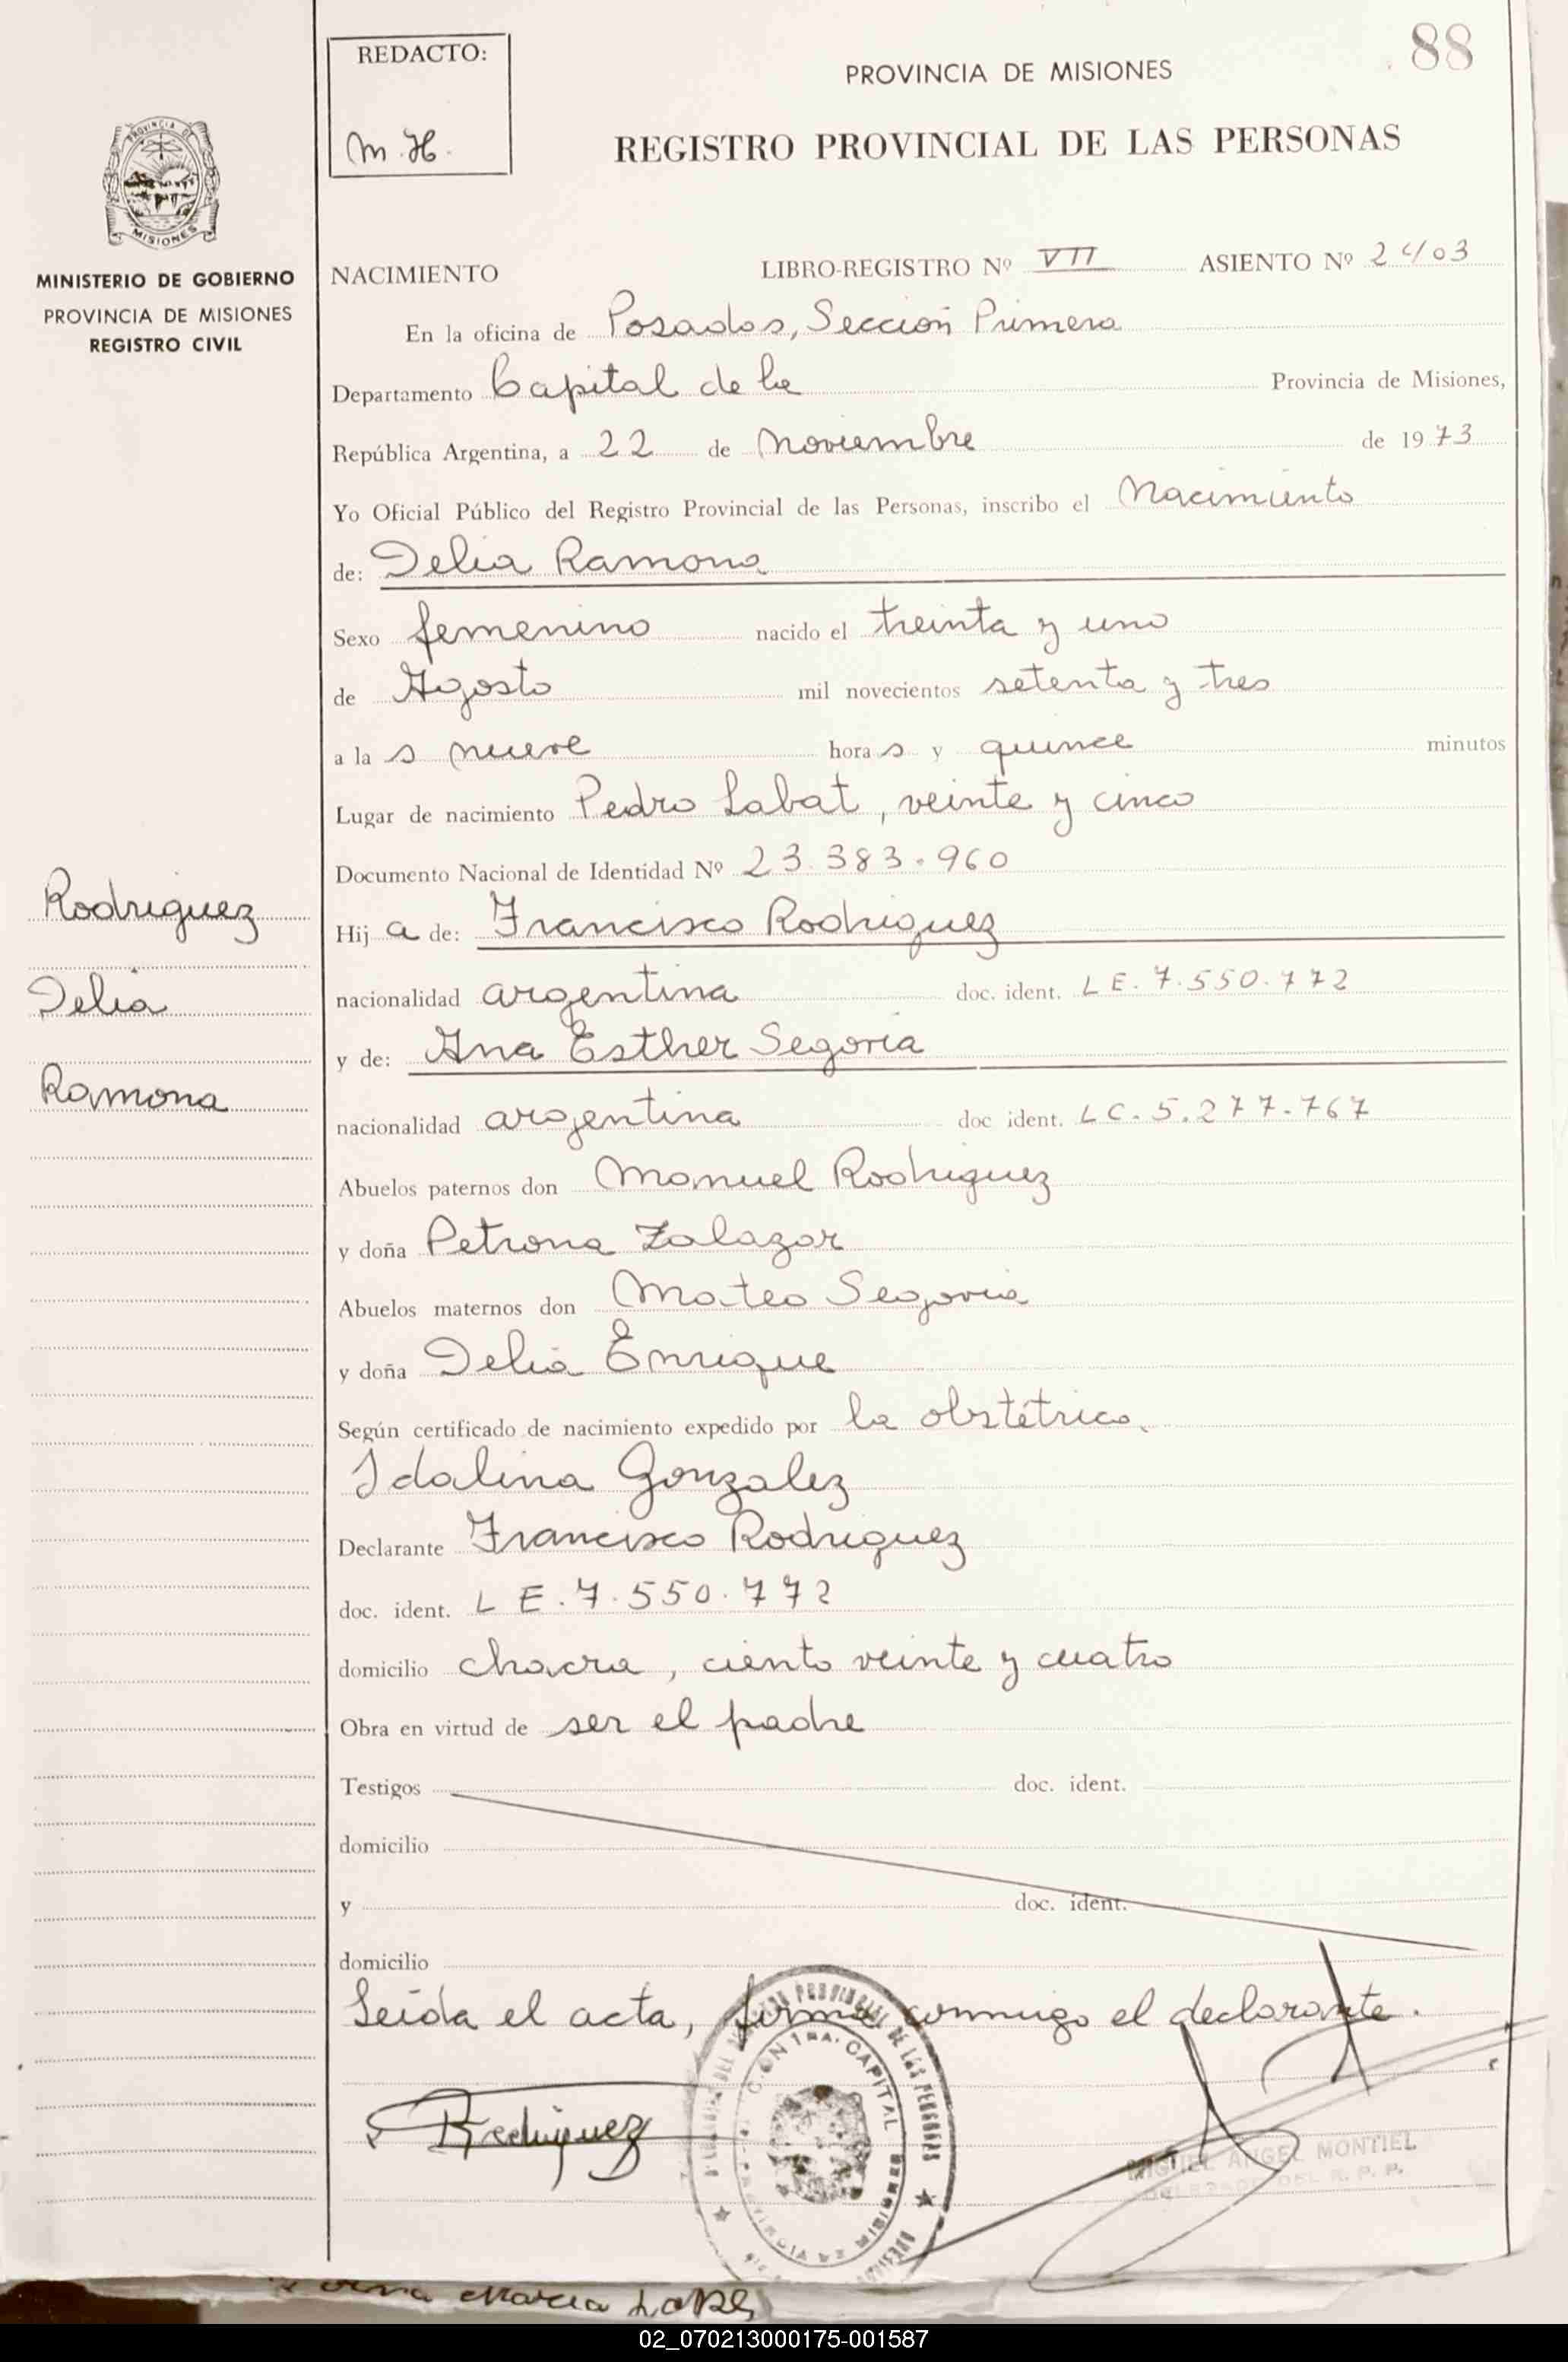 REDACTO:
M.H.
88
PROVINCIA DE MISIONES
REGISTRO PROVINCIAL DE LAS PERSONAS
PROVINCIA DE
MISIONES
MINISTERIO DE GOBIERNO
PROVINCIA DE MISIONES
REGISTRO CIVIL
NACIMIENTO LIBRO-REGISTRO Nº VII ASIENTO Nº 2403
En la oficina de Posadas, Sección Primera
Departamento Capital de la Provincia de Misiones,
República Argentina, a 22 de noviembre de 1973
Yo Oficial Público del Registro Provincial de las Personas, inscribo el Nacimiento
de: Delia Ramona
Sexo femenino nacido el treinta y uno
de Agosto mil novecientos setenta y tres
a las nueve horas y quince minutos
Lugar de nacimiento Pedro Labat, veinte y cinco
Documento Nacional de Identidad Nº 23.383.960
Rodriguez
Delia
Ramona
Hija de: Francisco Rodriguez
nacionalidad argentina doc. ident. LE. 7.550.772
y de: Ana Esther Segovia
nacionalidad argentina doc ident. LC. 5.277.767
Abuelos paternos don Manuel Rodriguez
y doña Petrona Zalazar
Abuelos maternos don Mateo Segovia
y doña Delia Enrique
Según certificado de nacimiento expedido por la obstétrica,
Idalina Gonzalez
Declarante Francisco Rodriguez
doc. ident. LE. 7.550.772
domicilio chacra, ciento veinte y cuatro
Obra en virtud de ser el padre
Testigos doc. ident.
domicilio
y doc. ident.
domicilio
Leída el acta, firma conmigo el declarante.
Rodriguez
MIGUEL ANGEL MONTIEL
DEL R. P. P.
02_070213000175-001587